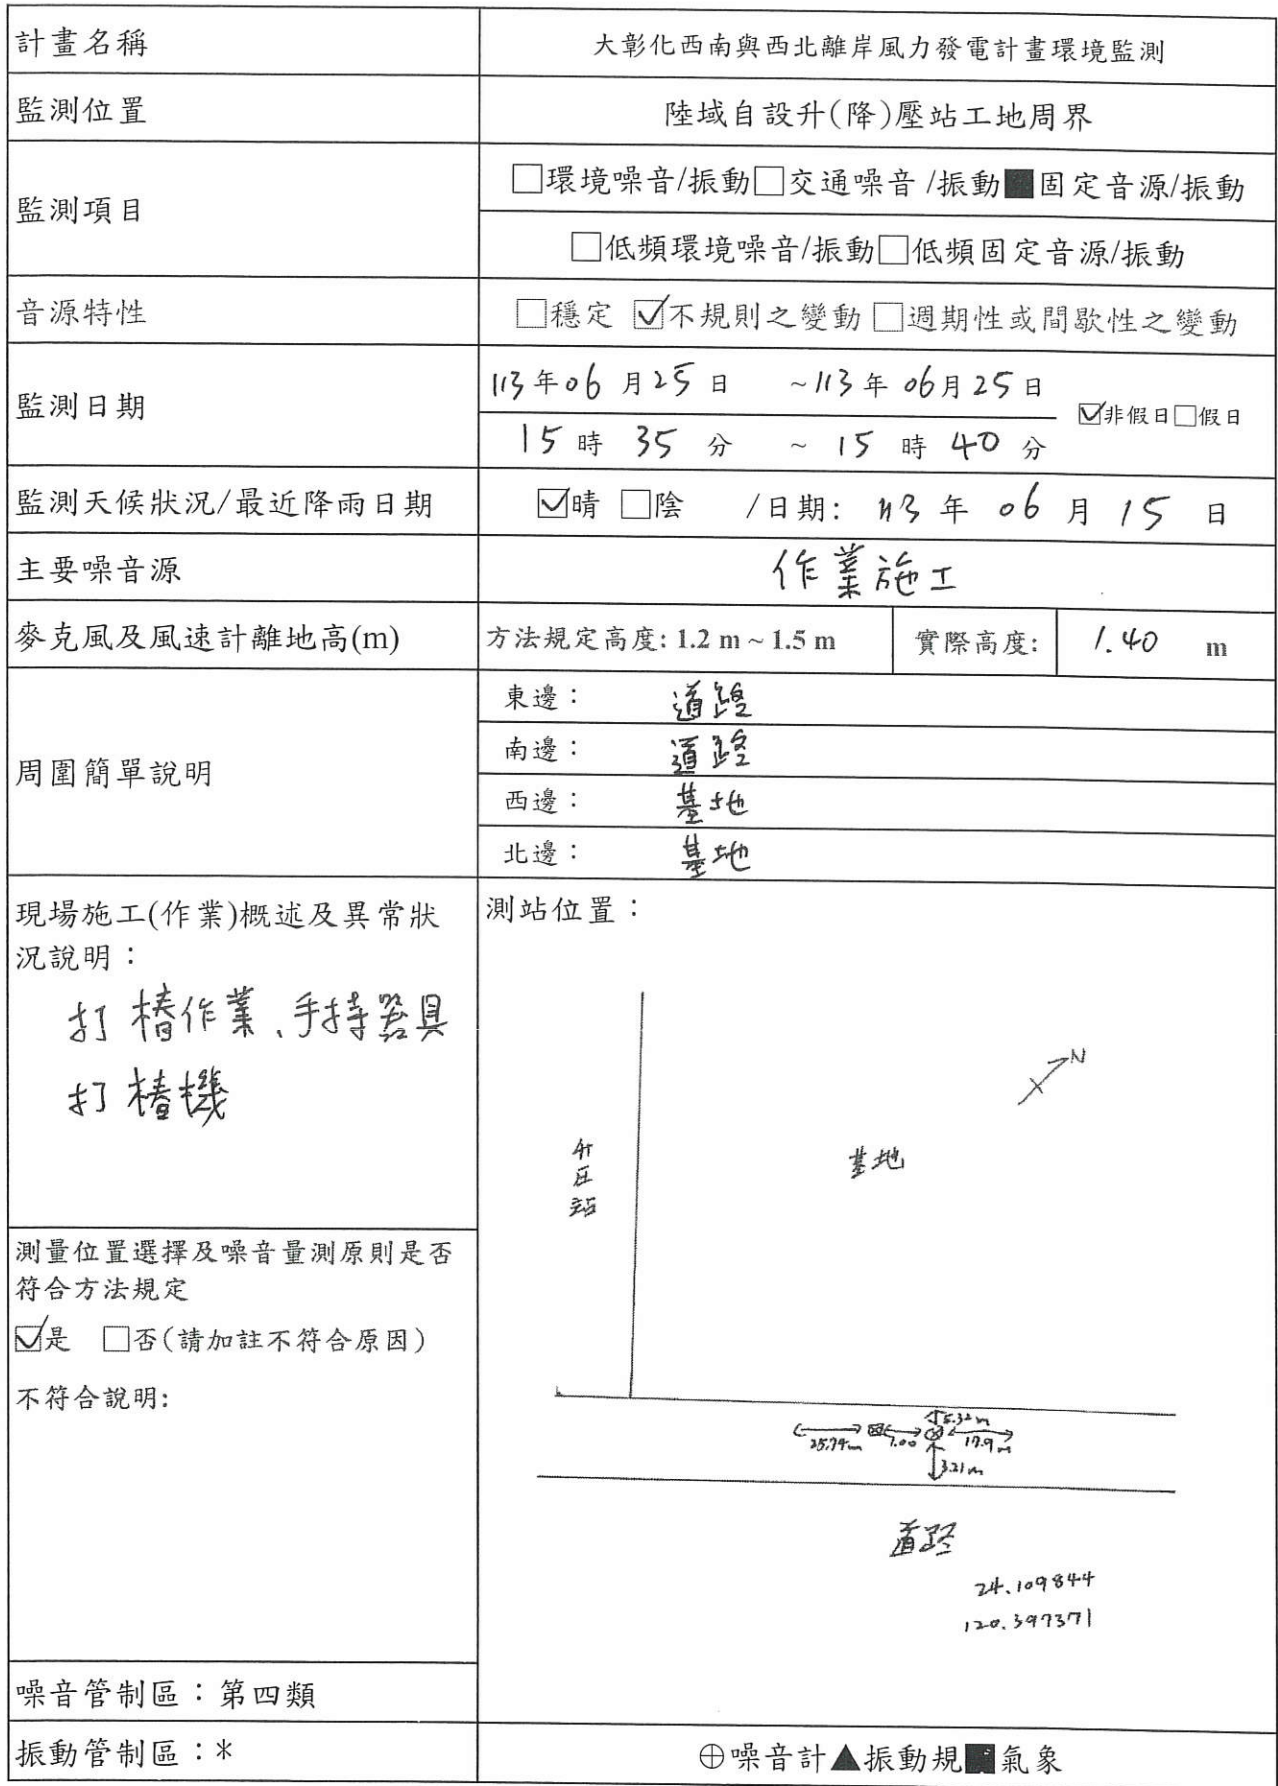 計畫名稱 大彰化西南與西北離岸風力發電計畫環境監測
監測位置 陸域自設升(降)壓站工地周界
監測項目 □環境噪音/振動□交通噪音/振動■固定音源/振動
□低頻環境噪音/振動□低頻固定音源/振動
音源特性 □穩定 ☑不規則之變動 □週期性或間歇性之變動
監測日期 113年06月25日 ~113年06月25日
15時35分 ~ 15時40分 ☑非假日□假日
監測天候狀況/最近降雨日期 ☑晴 □陰 /日期: 113年06月15日
主要噪音源 作業施工
麥克風及風速計離地高(m) 方法規定高度: 1.2 m ~ 1.5 m 實際高度: 1.40 m
周圍簡單說明
東邊: 道路
南邊: 道路
西邊: 基地
北邊: 基地
現場施工(作業)概述及異常狀
況說明:
打樁作業、手持器具
打樁機
測量位置選擇及噪音量測原則是否
符合方法規定
☑是 □否(請加註不符合原因)
不符合說明:
噪音管制區:第四類
振動管制區:*
測站位置:
N
升压站
基地
5.32m
25.74m 7.00 17.9m
3.21m
道路
24.109844
120.397371
⊕噪音計▲振動規■氣象